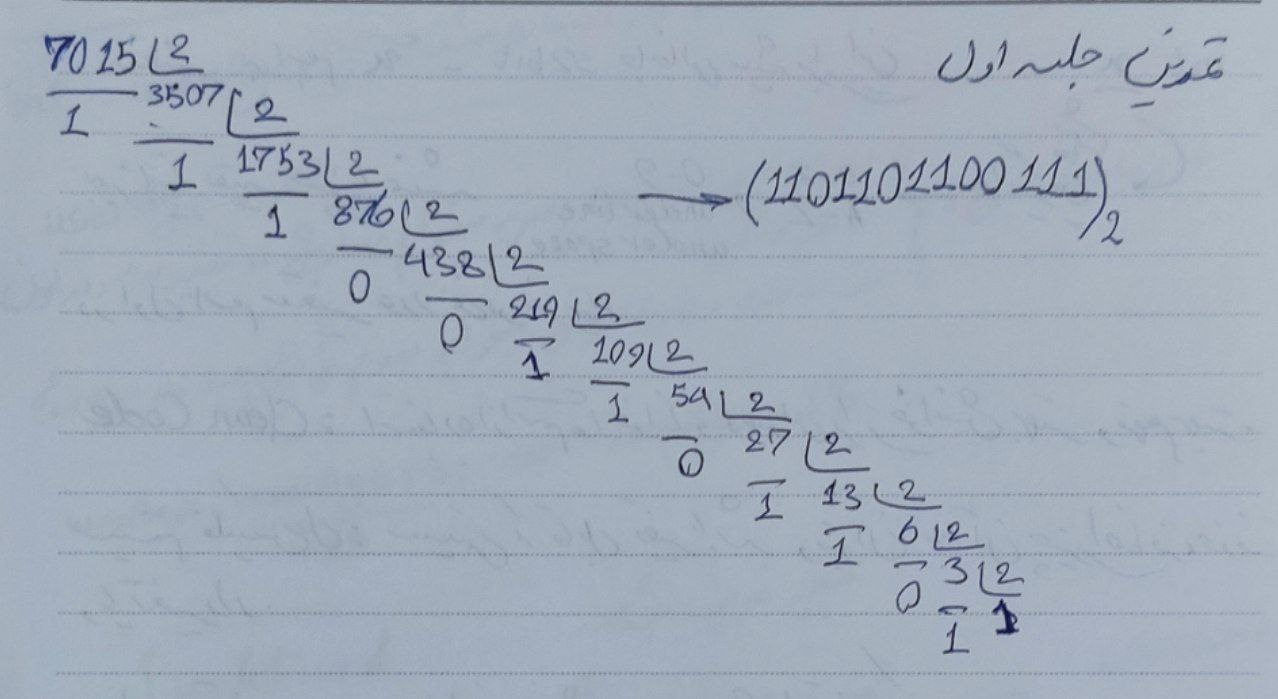 تمرین جلسه اول
7015 2
1 3507 2
1 1753 2
1 876 2
0 438 2
0 219 2
1 109 2
1 54 2
0 27 2
1 13 2
1 6 2
0 3 2
1 1
→ (1101101100111)2